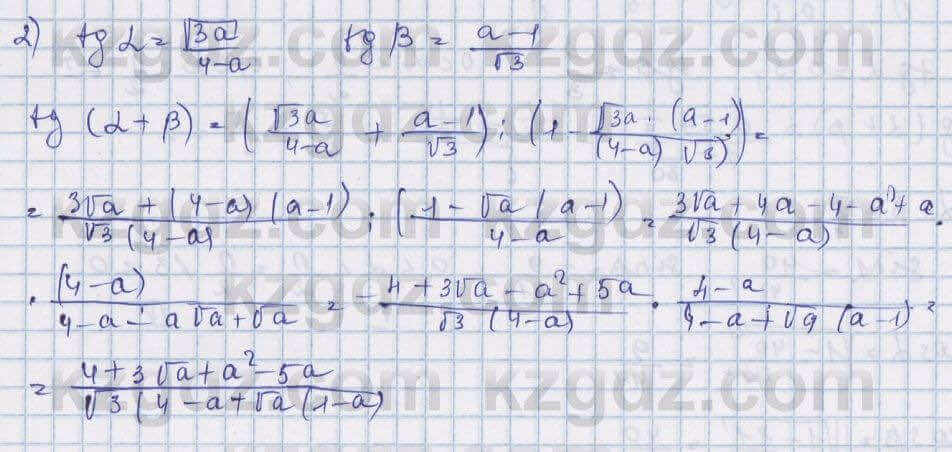 2) tg α = √3a / 4-a tg β = a-1 / √3
tg (α + β) = ( √3a / 4-a + a-1 / √3 ) : ( 1 - √3a · (a-1) / (4-a) √3 ) =
= 3√a + (4-a) (a-1) / √3 (4-a) : ( 1 - √a (a-1) / 4-a = 3√a + 4a - 4 - a² + a / √3 (4-a) ·
· (4-a) / 4-a - a√a + √a = - 4 + 3√a - a² + 5a / √3 (4-a) · 4-a / 4-a + √a (a-1) =
= 4 + 3√a + a² - 5a / √3 (4-a + √a (1-a)
kzgdz.com kzgdz.com
kzgdz.com kzgdz.com
kzgdz.com kzgdz.com
kzgdz.com kzgdz.com